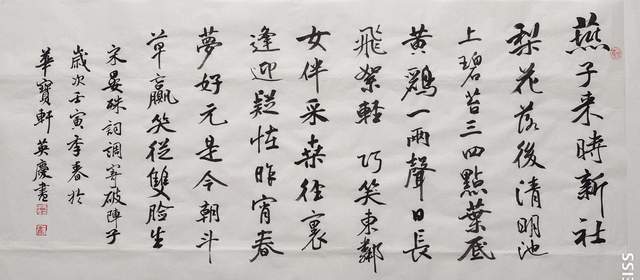 燕子来時新社
梨花落後清明池
上碧苔三四點葉底
黄鸝一兩聲日長
飛絮輕 巧笑東鄰
女伴采桑徑裏
逢迎疑怪昨宵春
夢好元是今朝斗
草贏笑從雙臉生
宋晏殊詞調寄破陣子
歲次壬寅季春於
華寶軒英慶書